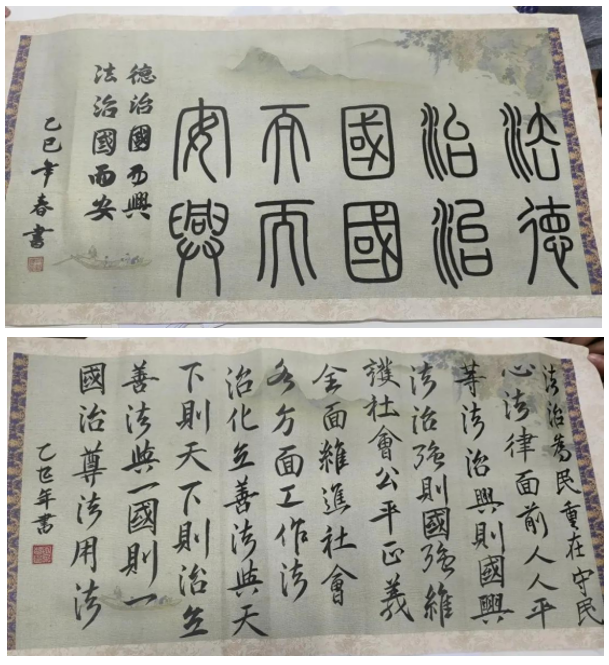 法治國而安
德治國而興
德治國而興
法治國而安
乙巳年春書
法治為民重在守民
心法律面前人人平
等法治興則國興
法治強則國強維
護社會公平正義
全面維進社會
各方面工作法
治化立善法與天
下則天下則治立
善法與一國則一
國治尊法用法
乙巳年書